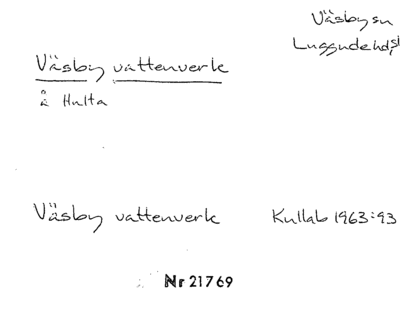 Väsby sn
Luggude hd,
Väsby vattenverk
å Hulta
Väsby vattenverk Kullab 1963:93
Nr 21769